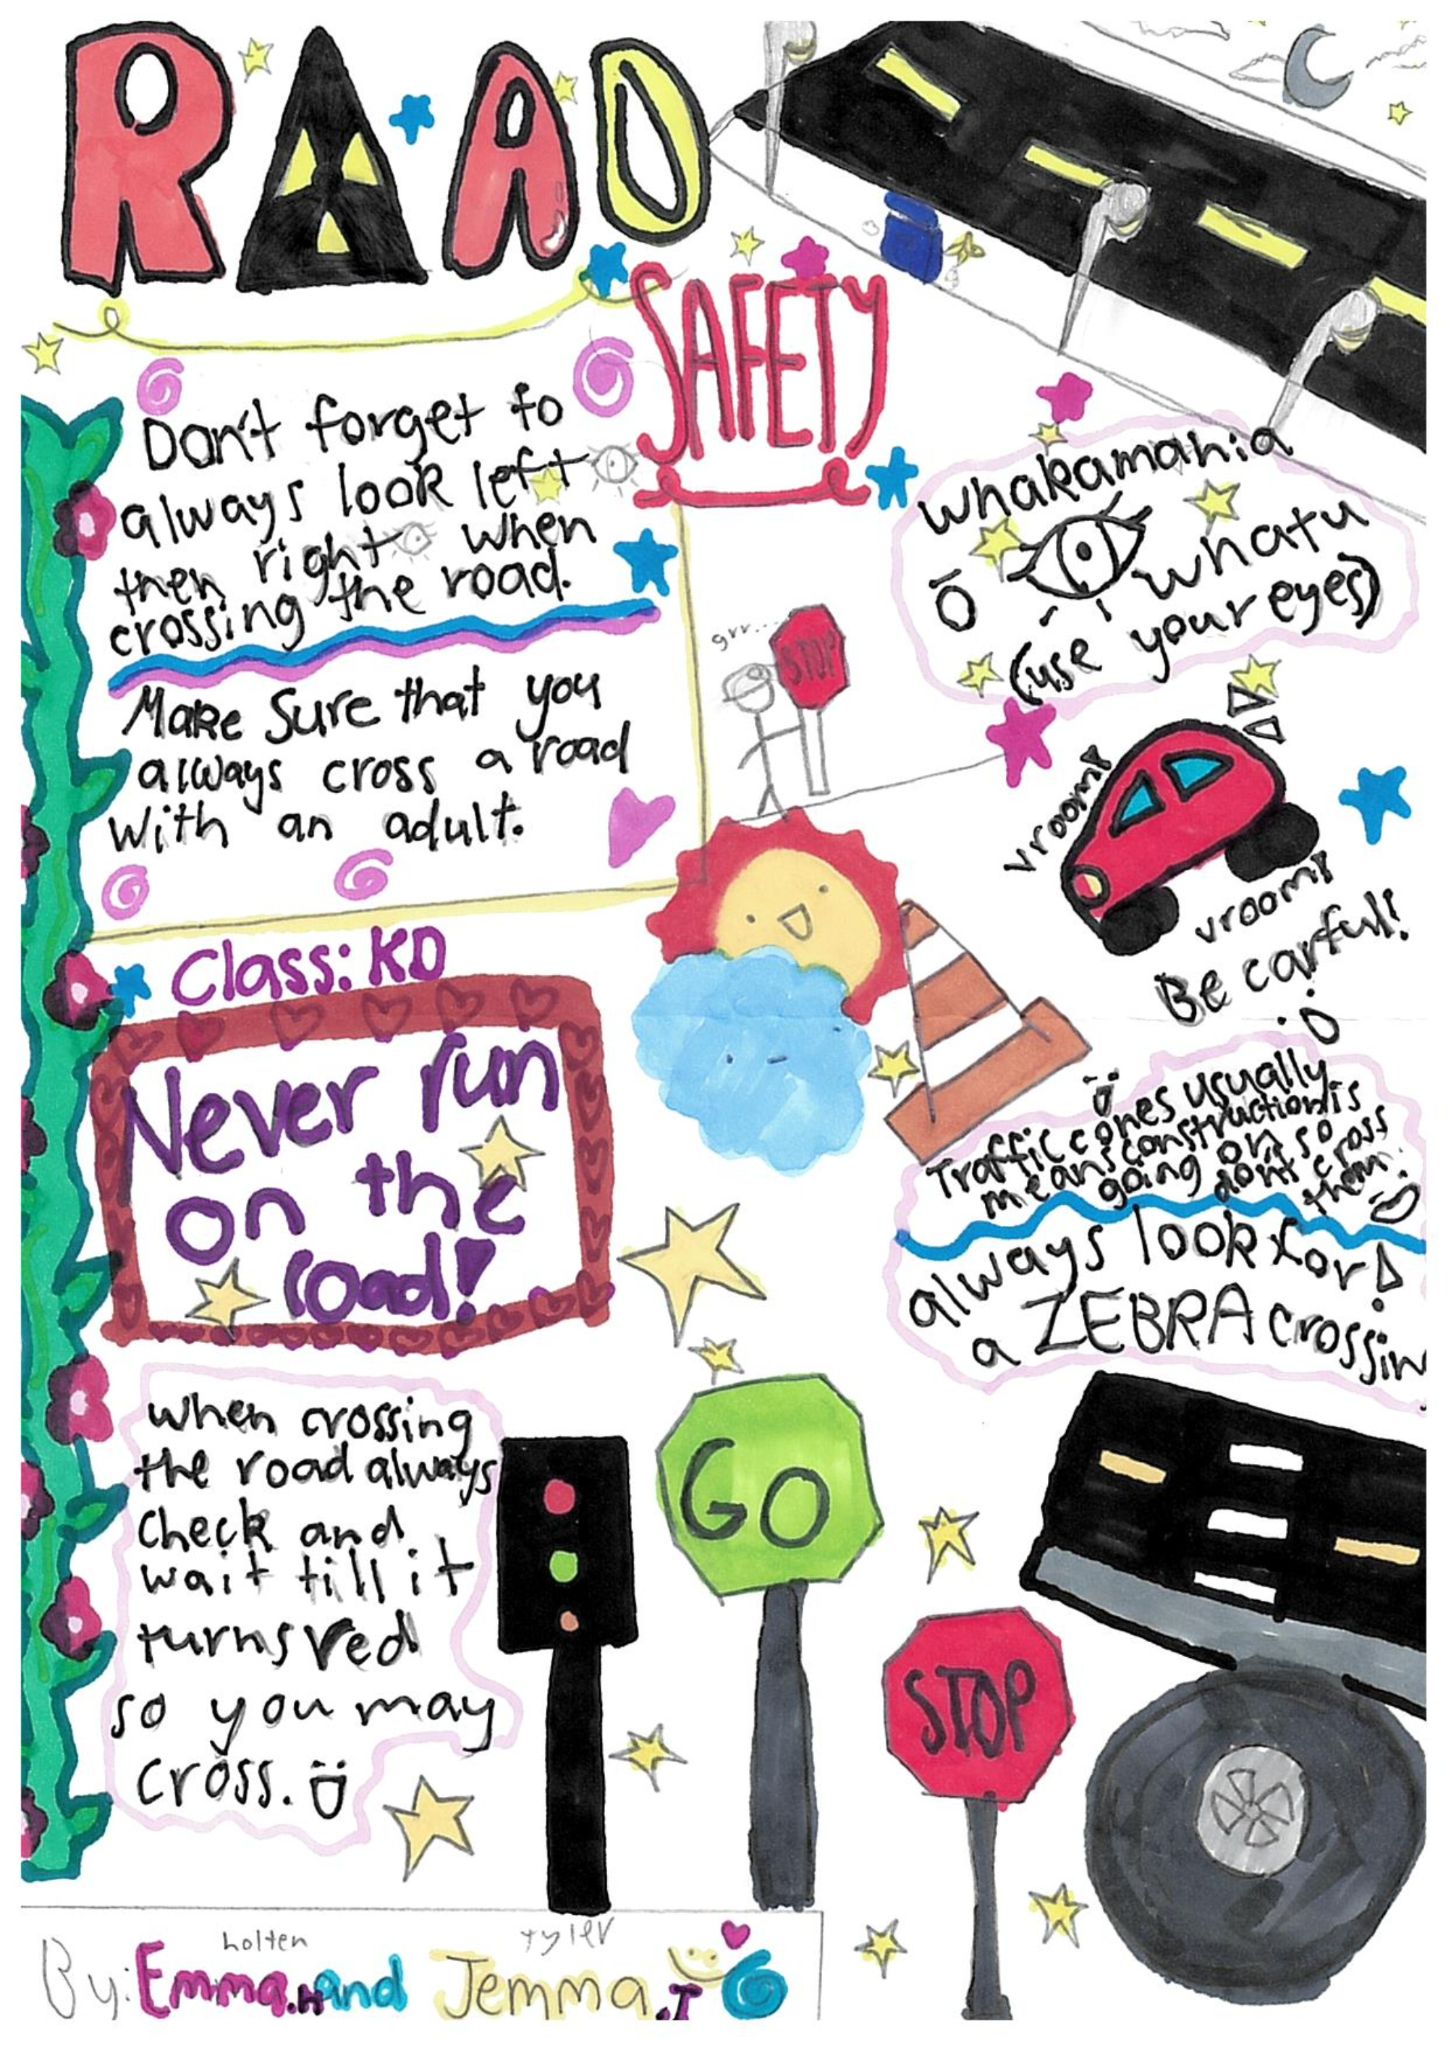 ROAD
SAFETY
Don't forget to
always look left
then right when
crossing the road.
Make Sure that you
always cross a road
with an adult.
grr...
STOP
whakamahia
ō whatu
(use your eyes)
vroom!
vroom!
Be carful!
Class: KD
Never run
on the
road!
Traffic cones usually
means construction is
going on so
don't cross
them.
always look for
a ZEBRA crossin
When crossing
the road always
check and
wait till it
turns red
so you may
cross.
GO
STOP
holten tyler
By: Emma.H and Jemma.T